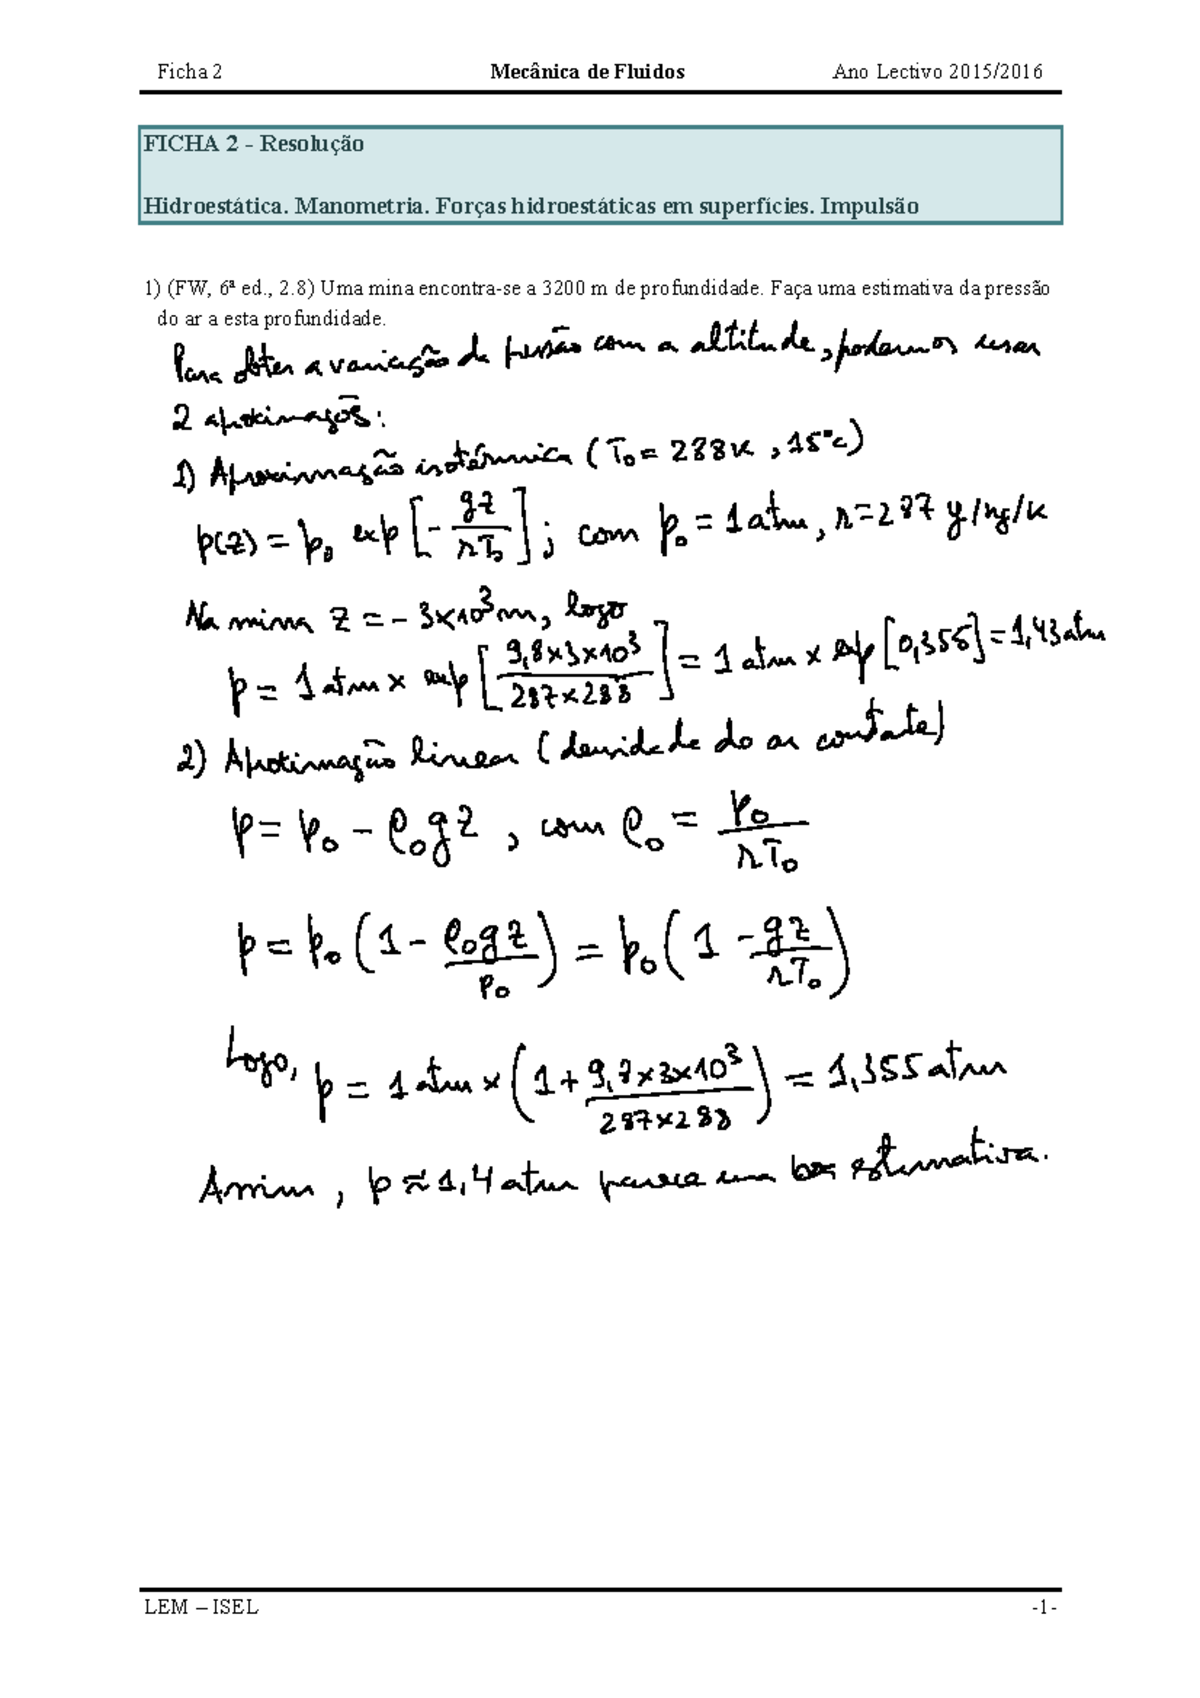 Ficha 2 Mecânica de Fluidos Ano Lectivo 2015/2016
FICHA 2 - Resolução
Hidroestática. Manometria. Forças hidroestáticas em superfícies. Impulsão
1) (FW, 6ª ed., 2.8) Uma mina encontra-se a 3200 m de profundidade. Faça uma estimativa da pressão
do ar a esta profundidade.
Para obter a variação da pressão com a altitude, podemos usar
2 aproximações:
1) Aproximação isotérmica (T₀ = 288K, 15°C)
p(z) = p₀ exp[-gz/rT₀]; com p₀ = 1 atm, r = 287 J/kg/K
Na mina z = -3×10³m, logo
p = 1 atm × exp[9,8×3×10³/287×288] = 1 atm × exp[0,355] = 1,43 atm
2) Aproximação linear (densidade do ar constate)
p = p₀ - ρ₀gz, com ρ₀ = p₀/rT₀
p = p₀(1 - ρ₀gz/p₀) = p₀(1 - gz/rT₀)
Logo, p = 1 atm × (1 + 9,8×3×10³/287×288) = 1,355 atm
Assim, p ≈ 1,4 atm parece uma boa estimativa.
LEM – ISEL -1-